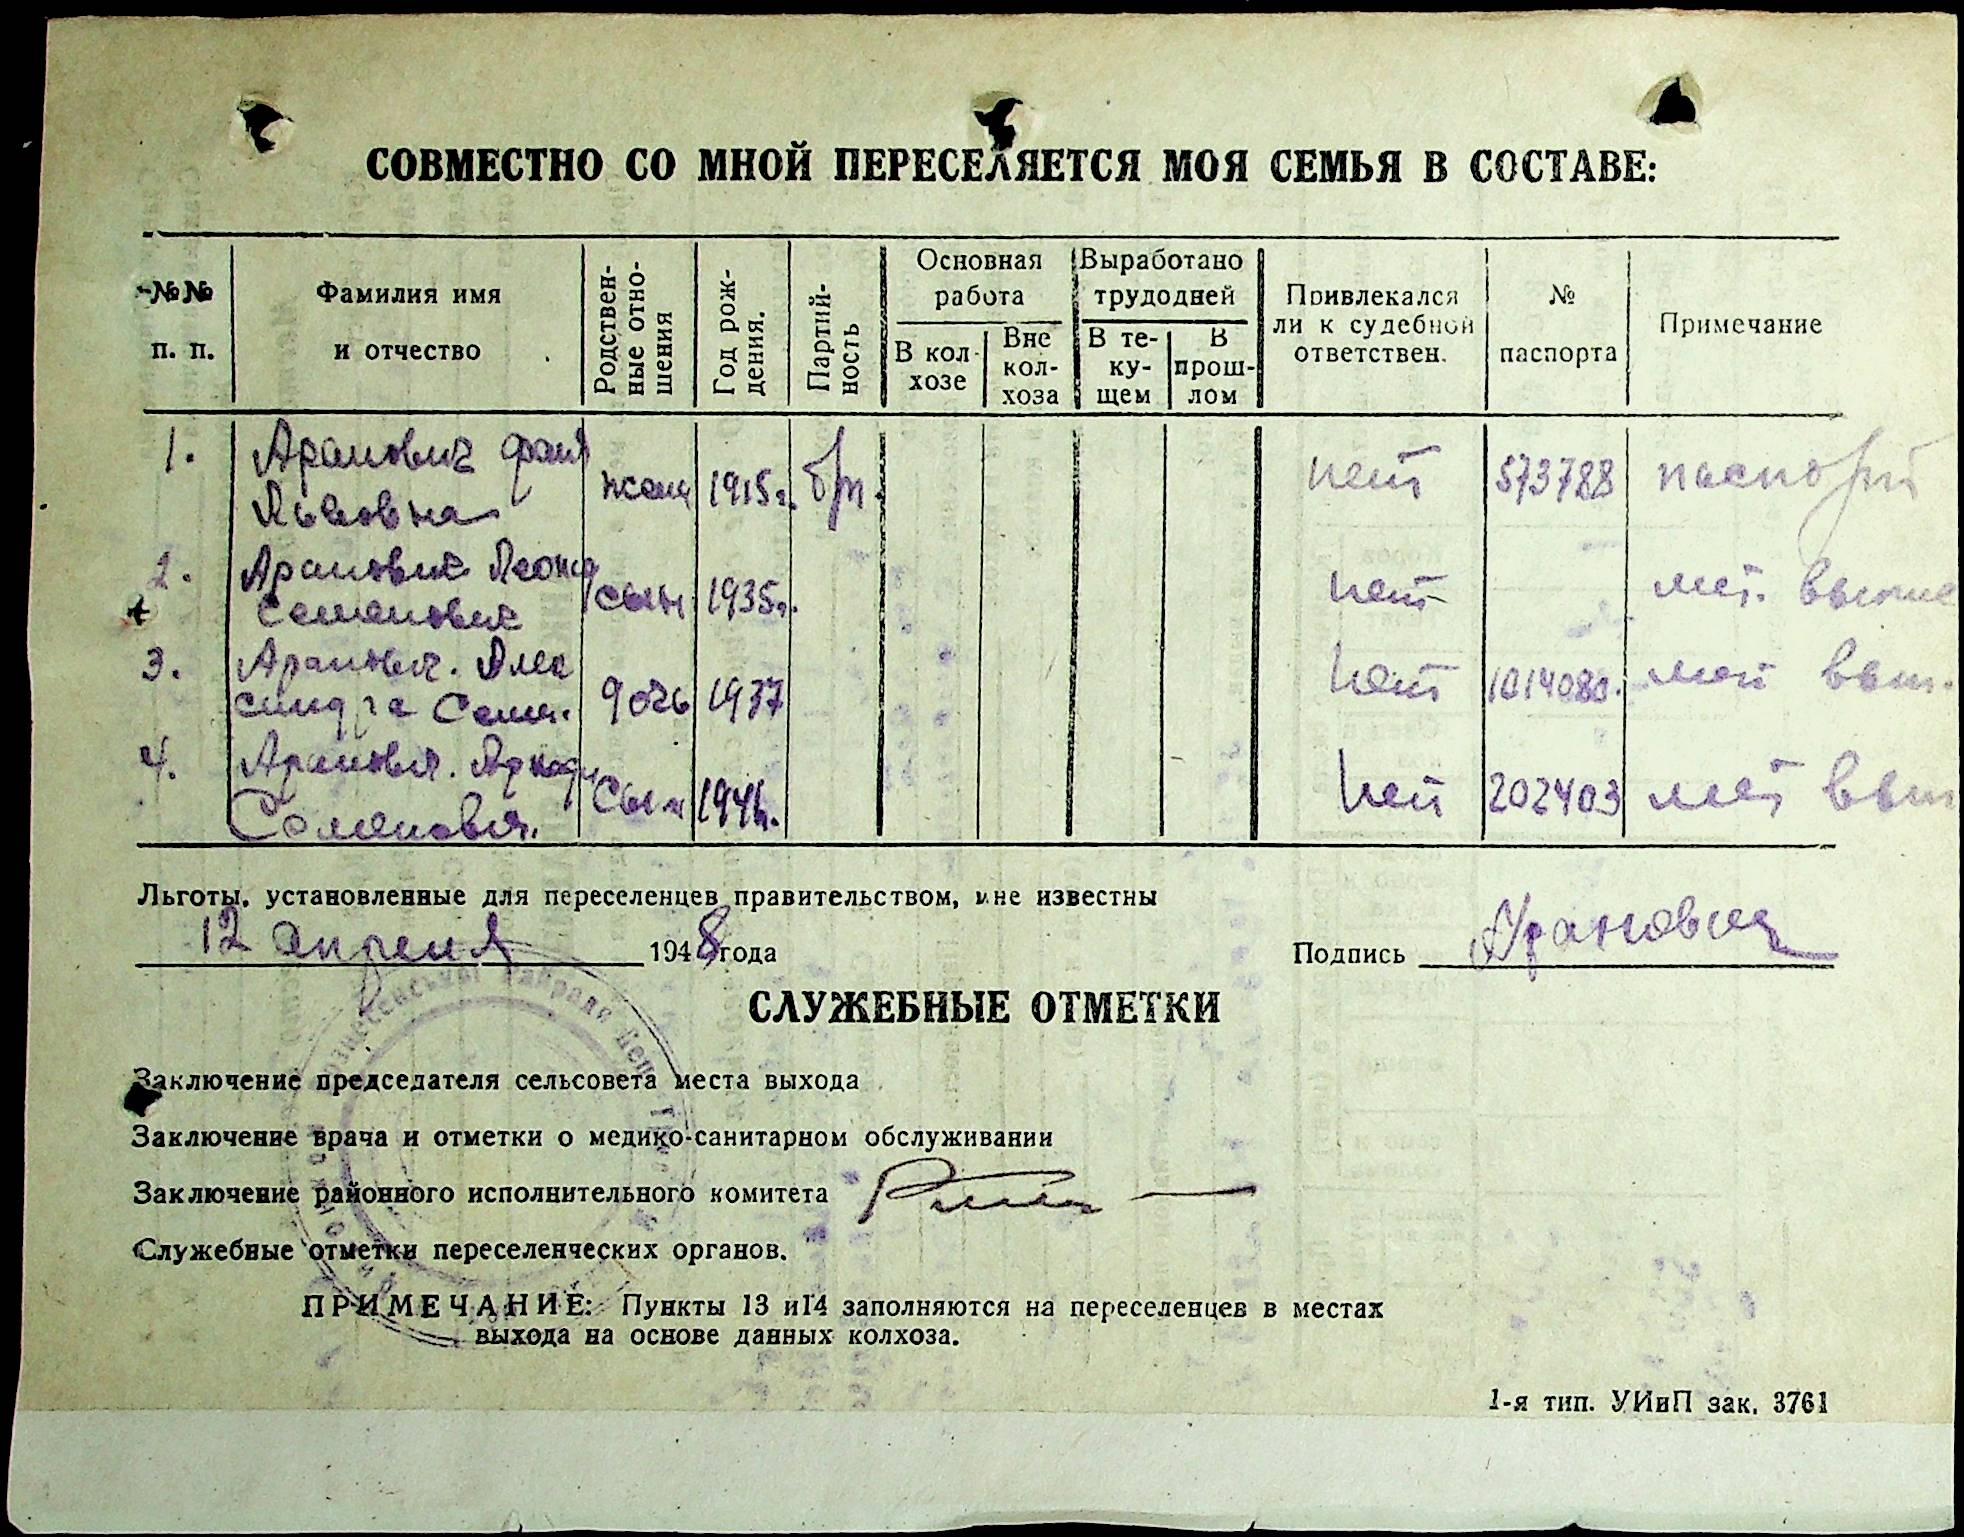 СОВМЕСТНО СО МНОЙ ПЕРЕСЕЛЯЕТСЯ МОЯ СЕМЬЯ В СОСТАВЕ:
№№ п. п.
Фамилия имя и отчество
Родствен-ные отно-шения
Год рож-дения.
Партий-ность
Основная работа
В кол-хозе
Вне кол-хоза
Выработано трудодней
В те-ку-щем
В прош-лом
Привлекался ли к судебной ответствен.
№ паспорта
Примечание
1. Арановичь фаня Львовна жена 1915г. б/п. нет 573788 паспорт
2. Арановичь Леонид Семенович сын 1935г. нет мет. выпис
3. Аранович. Алек сандра Семен. дочь 1937 нет 1014080. мет вып.
4. Аранович. Аркади Семенович. Сын 194 г. нет 202403 мет вып
Льготы, установленные для переселенцев правительством, мне известны
12 апреля 1948 года
Подпись Аранович
СЛУЖЕБНЫЕ ОТМЕТКИ
Заключение председателя сельсовета места выхода
Заключение врача и отметки о медико-санитарном обслуживании
Заключение районного исполнительного комитета
Служебные отметки переселенческих органов.
ПРИМЕЧАНИЕ: Пункты 13 и14 заполняются на переселенцев в местах
выхода на основе данных колхоза.
1-я тип. УИиП зак. 3761